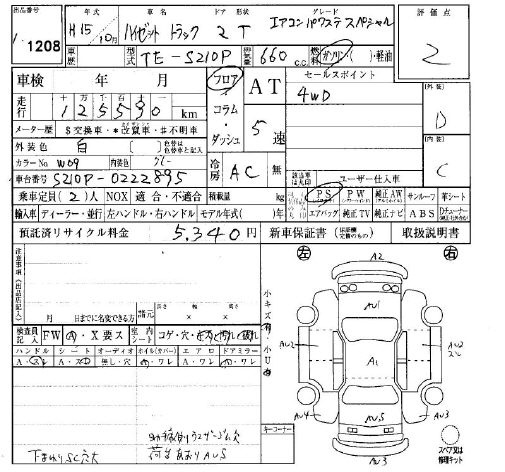 出品番号 年式 車名 ドア 形状 グレード 評価点
1208 H15/10月 ハイゼット トラック 2T エアコン パワステ スペシャル 2
車歴 型式 TE-S210P 排気量 660 c.c. 燃料 ガソリン・( )・軽油
車検 年 月 フロア・コラム・ダッシュ AT 5速 セールスポイント
4WD
走行 十万千百十 125590 km [外装] D
メーター歴 $ 交換車・* 改竄車・# 不明車
外装色 白 [ ] 色替車 [内装] C
カラーNo W09 内装色 グレー 冷房 AC 無 ユーザー仕入車
車台番号 S210P-0222895
乗車定員(2)人 NOX 適合・不適合 積載量 kg PS PW 純正AW サンルーフ 革シート
輸入車 ディーラー・並行 左ハンドル・右ハンドル モデル年式( )年 エアバッグ 純正TV 純正ナビ ABS
預託済リサイクル料金 5,340円 新車保証書 取扱説明書
注意事項(出品店記入)
左 右
月 日までに名変できる方 諸元 長さ 幅 高さ
× ×
小キズ有・小U有
検査員記入 FW A・X要ス 室内シート コゲ・穴・キズ・汚れ・破れ
ハンドル シート オーディオ ホイル(カバー) エアロ ドアミラー
A・スレ A・スレ 無し・穴 A・ワレ A・ワレ A・ワレ
下まわりSC大
荷台 AU5
キーコーナー
スペア又は修理キット
A2
AU1
AU2 AU2
A1
AU4 AU5 AU3
AU3